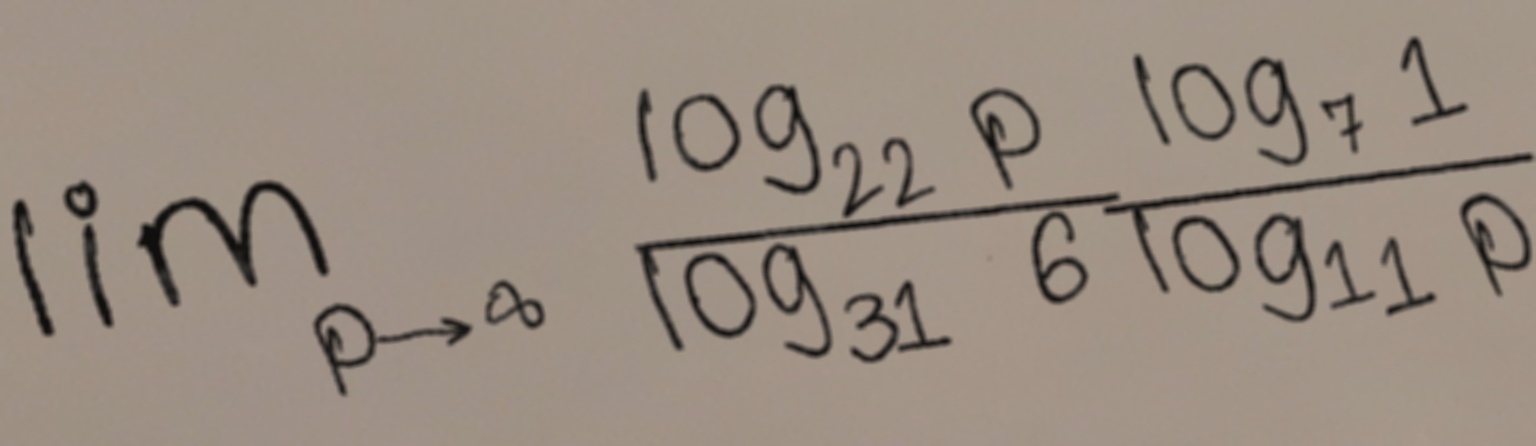 \lim_{p \to \infty} \frac{\log_{22} p}{\log_{31} 6} \frac{\log_{7} 1}{\log_{11} p}